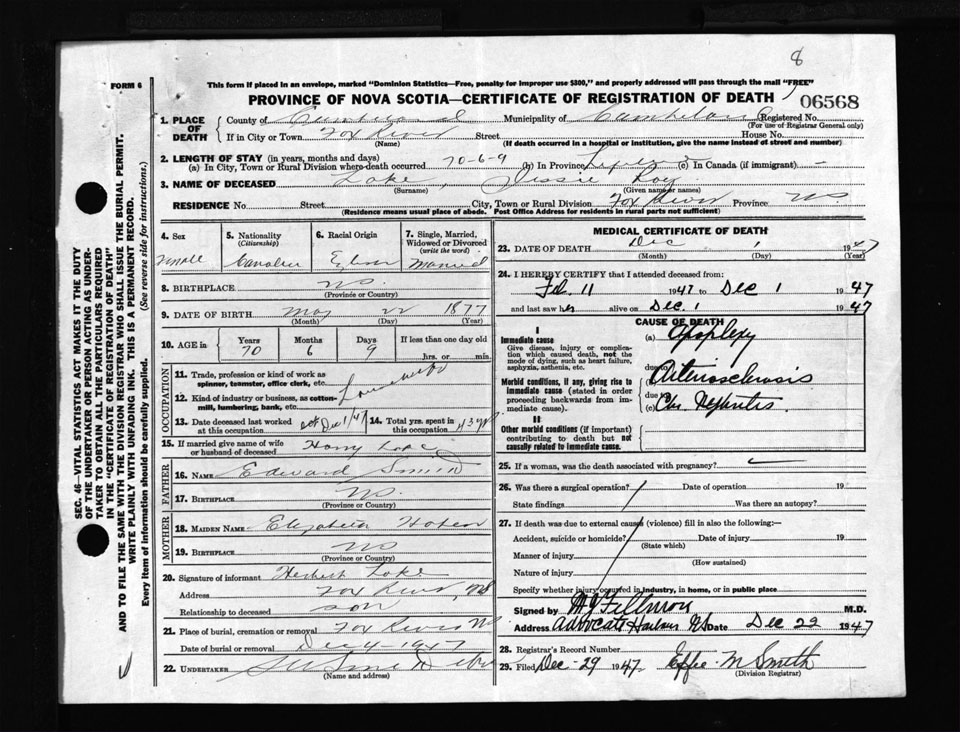 8
FORM 6
This form if placed in an envelope, marked "Dominion Statistics—Free, penalty for improper use $300," and properly addressed will pass through the mail "FREE"
PROVINCE OF NOVA SCOTIA—CERTIFICATE OF REGISTRATION OF DEATH
06568
1. PLACE OF DEATH
County of Cumberland Municipality of Cumberland Registered No.
(For use of Registrar General only)
If in City or Town Fox River Street House No.
(Name) (If death occurred in a hospital or institution, give the name instead of street and number)
2. LENGTH OF STAY (in years, months and days)
(a) In City, Town or Rural Division where death occurred 70-6-9 (b) In Province (c) In Canada (if immigrant) -
3. NAME OF DECEASED Lake, Jessie Roy
(Surname) (Given name or names)
RESIDENCE No. Street City, Town or Rural Division Fox River Province NS.
(Residence means usual place of abode. Post Office Address for residents in rural parts not sufficient)
4. Sex
Female
5. Nationality
(Citizenship)
Canadian
6. Racial Origin
English
7. Single, Married, Widowed or Divorced
(write the word)
Married
8. BIRTHPLACE NS.
(Province or Country)
9. DATE OF BIRTH May 22 1877
(Month) (Day) (Year)
10. AGE in
Years Months Days If less than one day
70 6 9 hrs. or min.
OCCUPATION
11. Trade, profession or kind of work as spinner, teamster, office clerk, etc.
12. Kind of industry or business, as cotton-mill, lumbering, bank, etc.
Housewife
13. Date deceased last worked at this occupation Dec 1/47
14. Total yrs. spent in this occupation 43 yrs
15. If married give name of wife or husband of deceased Harry Lake
FATHER
16. NAME Edward Smith
17. BIRTHPLACE NS.
(Province or Country)
MOTHER
18. MAIDEN NAME Elizabeth
19. BIRTHPLACE NS
(Province or Country)
20. Signature of informant Herbert Lake
Address Fox River, NS
Relationship to deceased son
21. Place of burial, cremation or removal Fox River NS
Date of burial or removal Dec 4-1947
22. UNDERTAKER
(Name and address)
MEDICAL CERTIFICATE OF DEATH
23. DATE OF DEATH Dec 1 1947
(Month) (Day) (Year)
24. I HEREBY CERTIFY that I attended deceased from:
Feb. 11 1947 to Dec 1 1947
and last saw her alive on Dec. 1 1947
CAUSE OF DEATH
I
Immediate cause
Give disease, injury or complication which caused death, not the mode of dying, such as heart failure, asphyxia, asthenia, etc.
(a) Apoplexy
due to
Morbid conditions, if any, giving rise to immediate cause (stated in order proceeding backwards from immediate cause).
Arteriosclerosis
due to
(c) Chr. Nephritis
II
Other morbid conditions (if important) contributing to death but not causally related to immediate cause.
25. If a woman, was the death associated with pregnancy?
26. Was there a surgical operation? Date of operation 19
State findings Was there an autopsy?
27. If death was due to external causes (violence) fill in also the following:—
Accident, suicide or homicide? Date of injury 19
(State which)
Manner of injury
(How sustained)
Nature of injury
Specify whether injury occurred in industry, in home, or in public place
Signed by M J Fillmore M.D.
Address Advocate Harbour NS Date Dec 29 1947
28. Registrar's Record Number
29. Filed Dec-29 1947. Effie M Smith
(Division Registrar)
SEC. 46—VITAL STATISTICS ACT MAKES IT THE DUTY
OF THE UNDERTAKER OR PERSON ACTING AS UNDER-
TAKER TO OBTAIN ALL THE PARTICULARS REQUIRED
IN THE "CERTIFICATE OF REGISTRATION OF DEATH"
AND TO FILE THE SAME WITH THE DIVISION REGISTRAR WHO SHALL ISSUE THE BURIAL PERMIT.
WRITE PLAINLY WITH UNFADING INK. THIS IS A PERMANENT RECORD.
Every item of information should be carefully supplied. (See reverse side for instructions.)